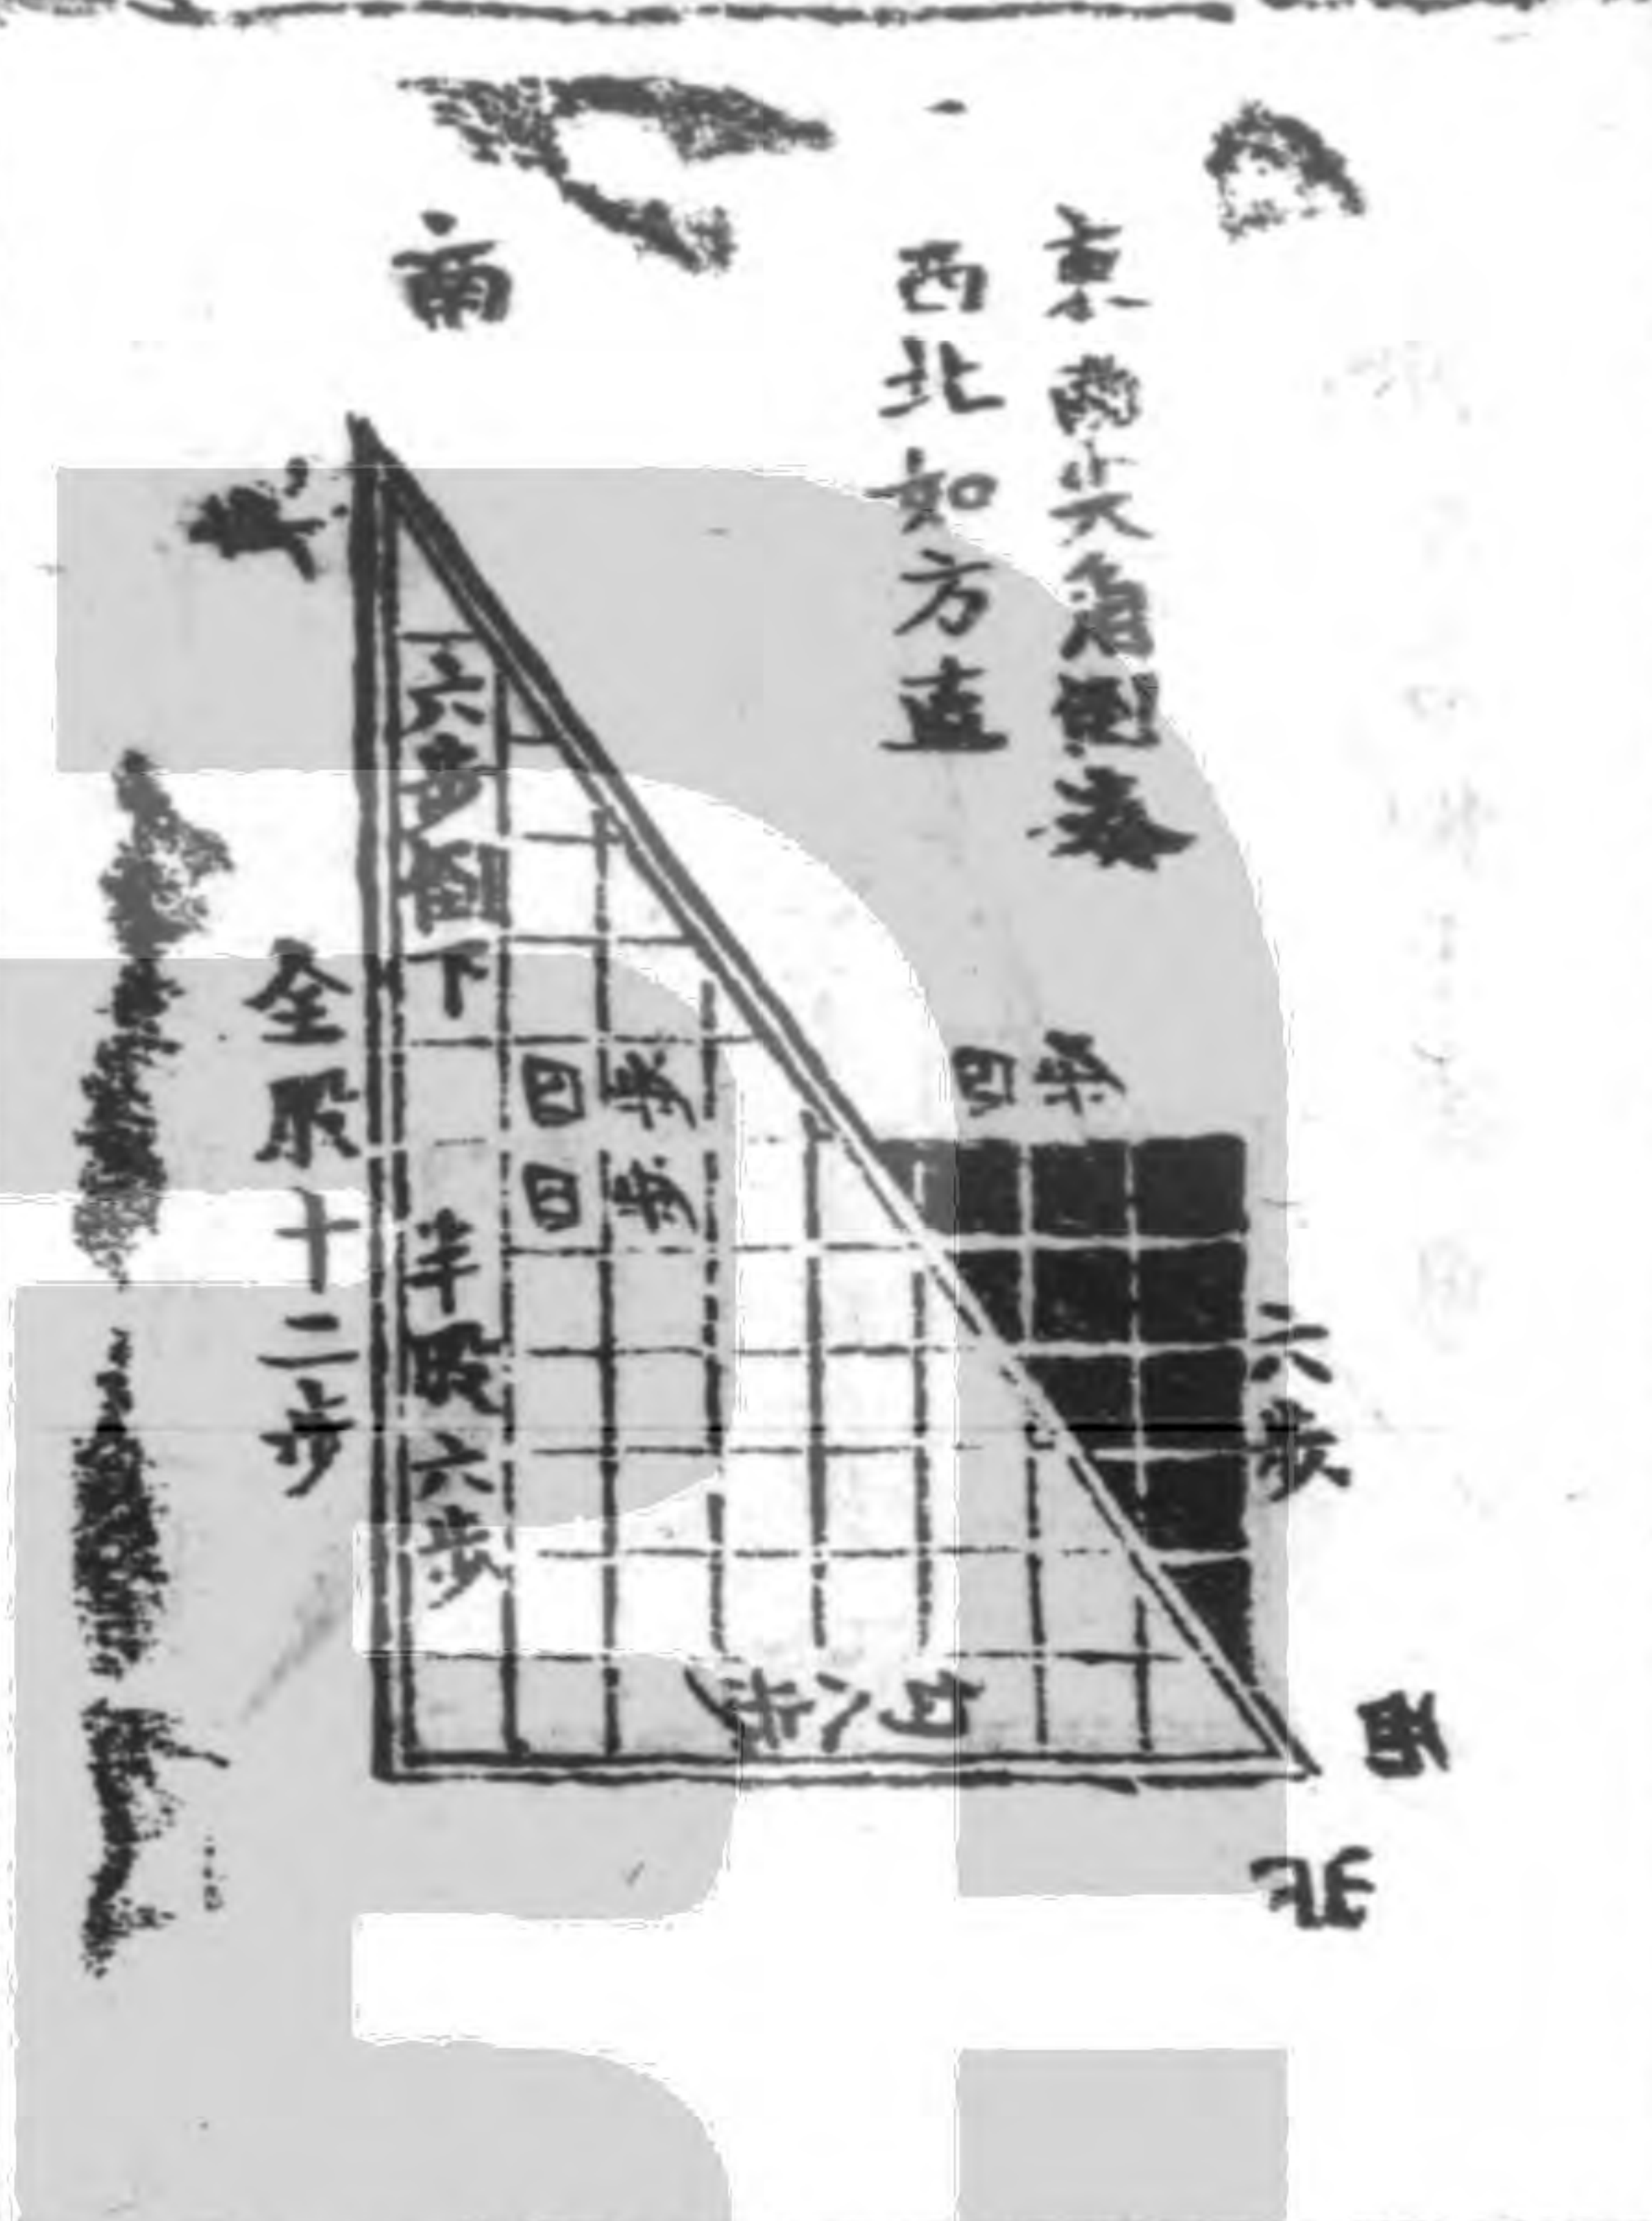 東南尖角倒來
西北如方直
南
六步倒下
全股十二步
半股六步
四步
四步
四步
六步
勾八步
西
北